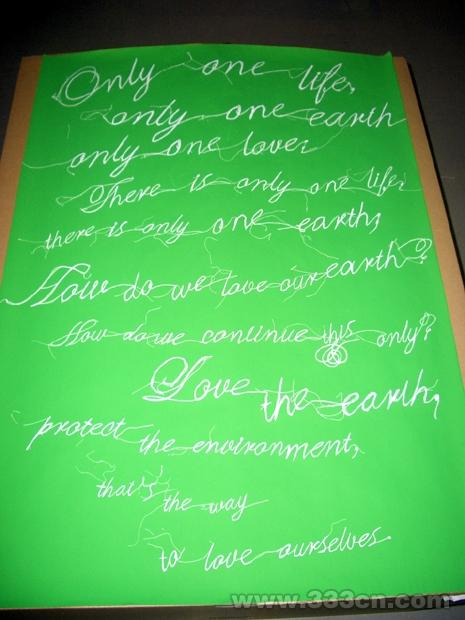 Only one life,
only one earth
only one love:
There is only one life,
there is only one earth,
How do we love our earth?
How do we continue this only?
Love the earth,
protect the environment,
that's the way
to love ourselves.
www.333cn.com